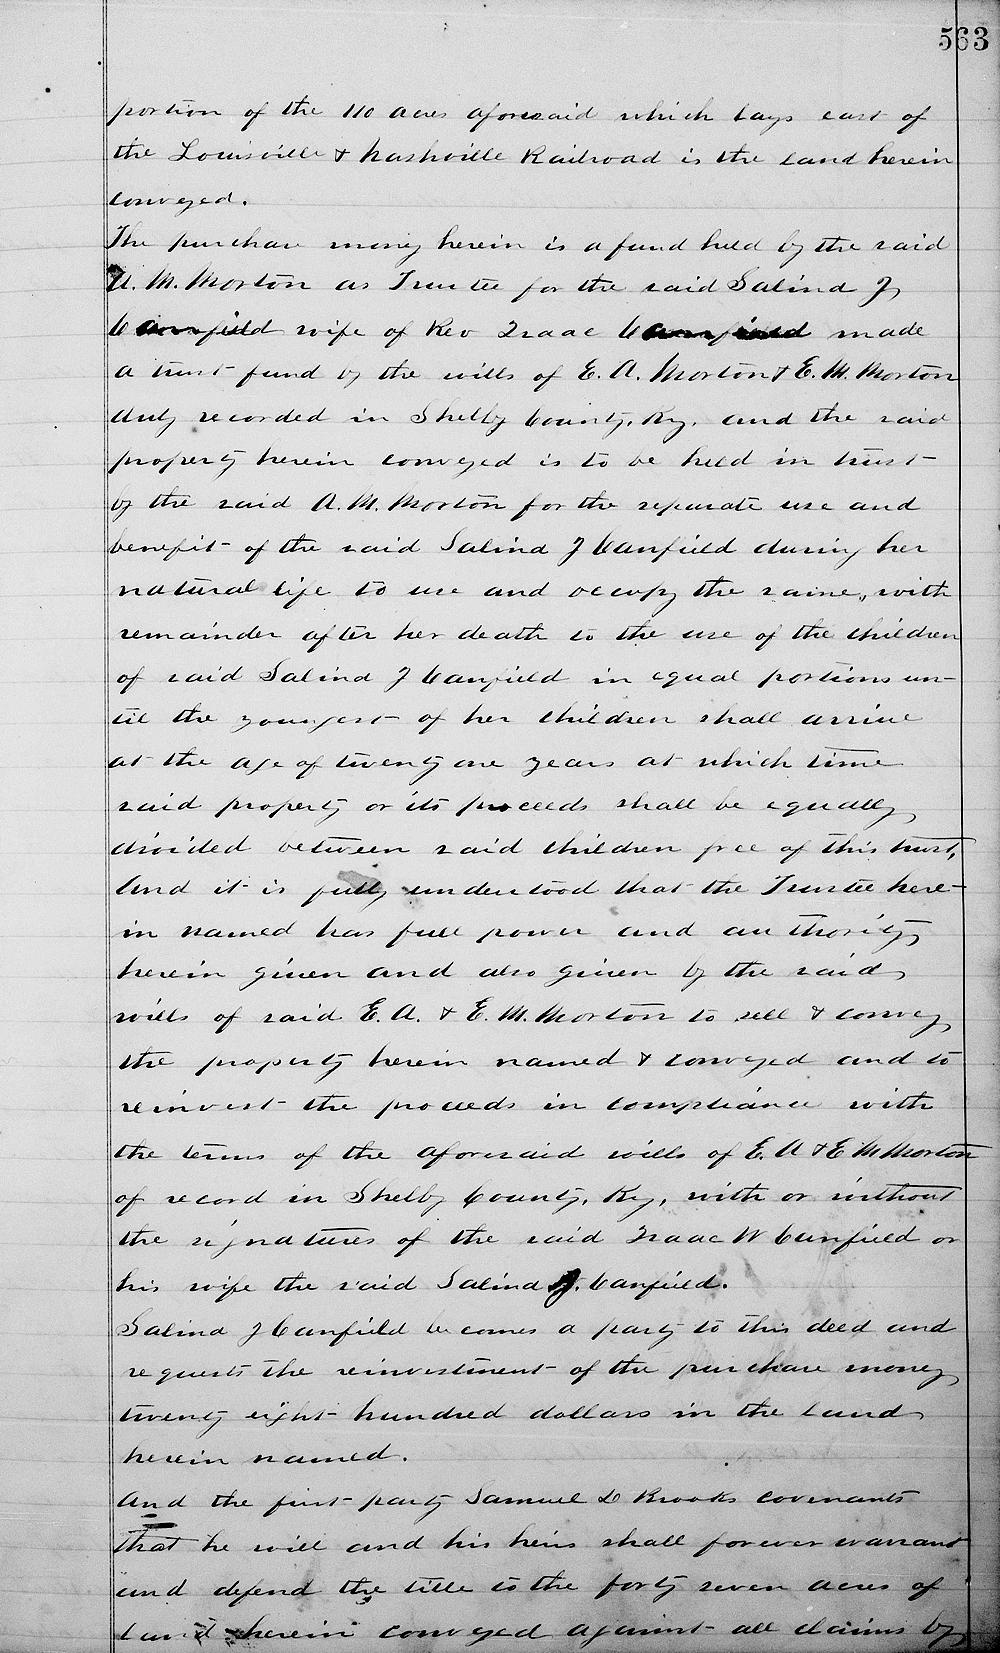 563
portion of the 110 acres aforesaid which lays east of
the Louisville & Nashville Railroad is the land herein
conveyed.
The purchase money herein is a fund held by the said
A. M. Morton as Trustee for the said Salind J
Canfield wife of Rev Isaac Canfield made
a trust fund by the wills of E. A. Morton & E. M. Morton
duly recorded in Shelby County, Ky, and the said
property herein conveyed is to be held in trust
by the said A. M. Morton for the separate use and
benefit of the said Salind J Canfield during her
natural life to use and occupy the same, with
remainder after her death to the use of the children
of said Salind J Canfield in equal portions un-
til the youngest of her children shall arrive
at the age of twenty one years at which time
said property or its proceeds shall be equally
divided between said children free of this trust,
And it is fully understood that the Trustee here-
in named has full power and authority
herein given and also given by the said
wills of said E. A. & E. M. Morton to sell & convey
the property herein named & conveyed and to
reinvest the proceeds in compliance with
the terms of the aforesaid wills of E. A & E M Morton
of record in Shelby County, Ky, with or without
the signatures of the said Isaac W Canfield or
his wife the said Salind J. Canfield.
Salind J Canfield becomes a party to this deed and
requests the reinvestment of the purchase money
twenty eight hundred dollars in the land
herein named.
And the first party Samuel D Brooks covenants
that he will and his heirs shall forever warrant
and defend the title to the forty seven acres of
land herein conveyed against all claims by